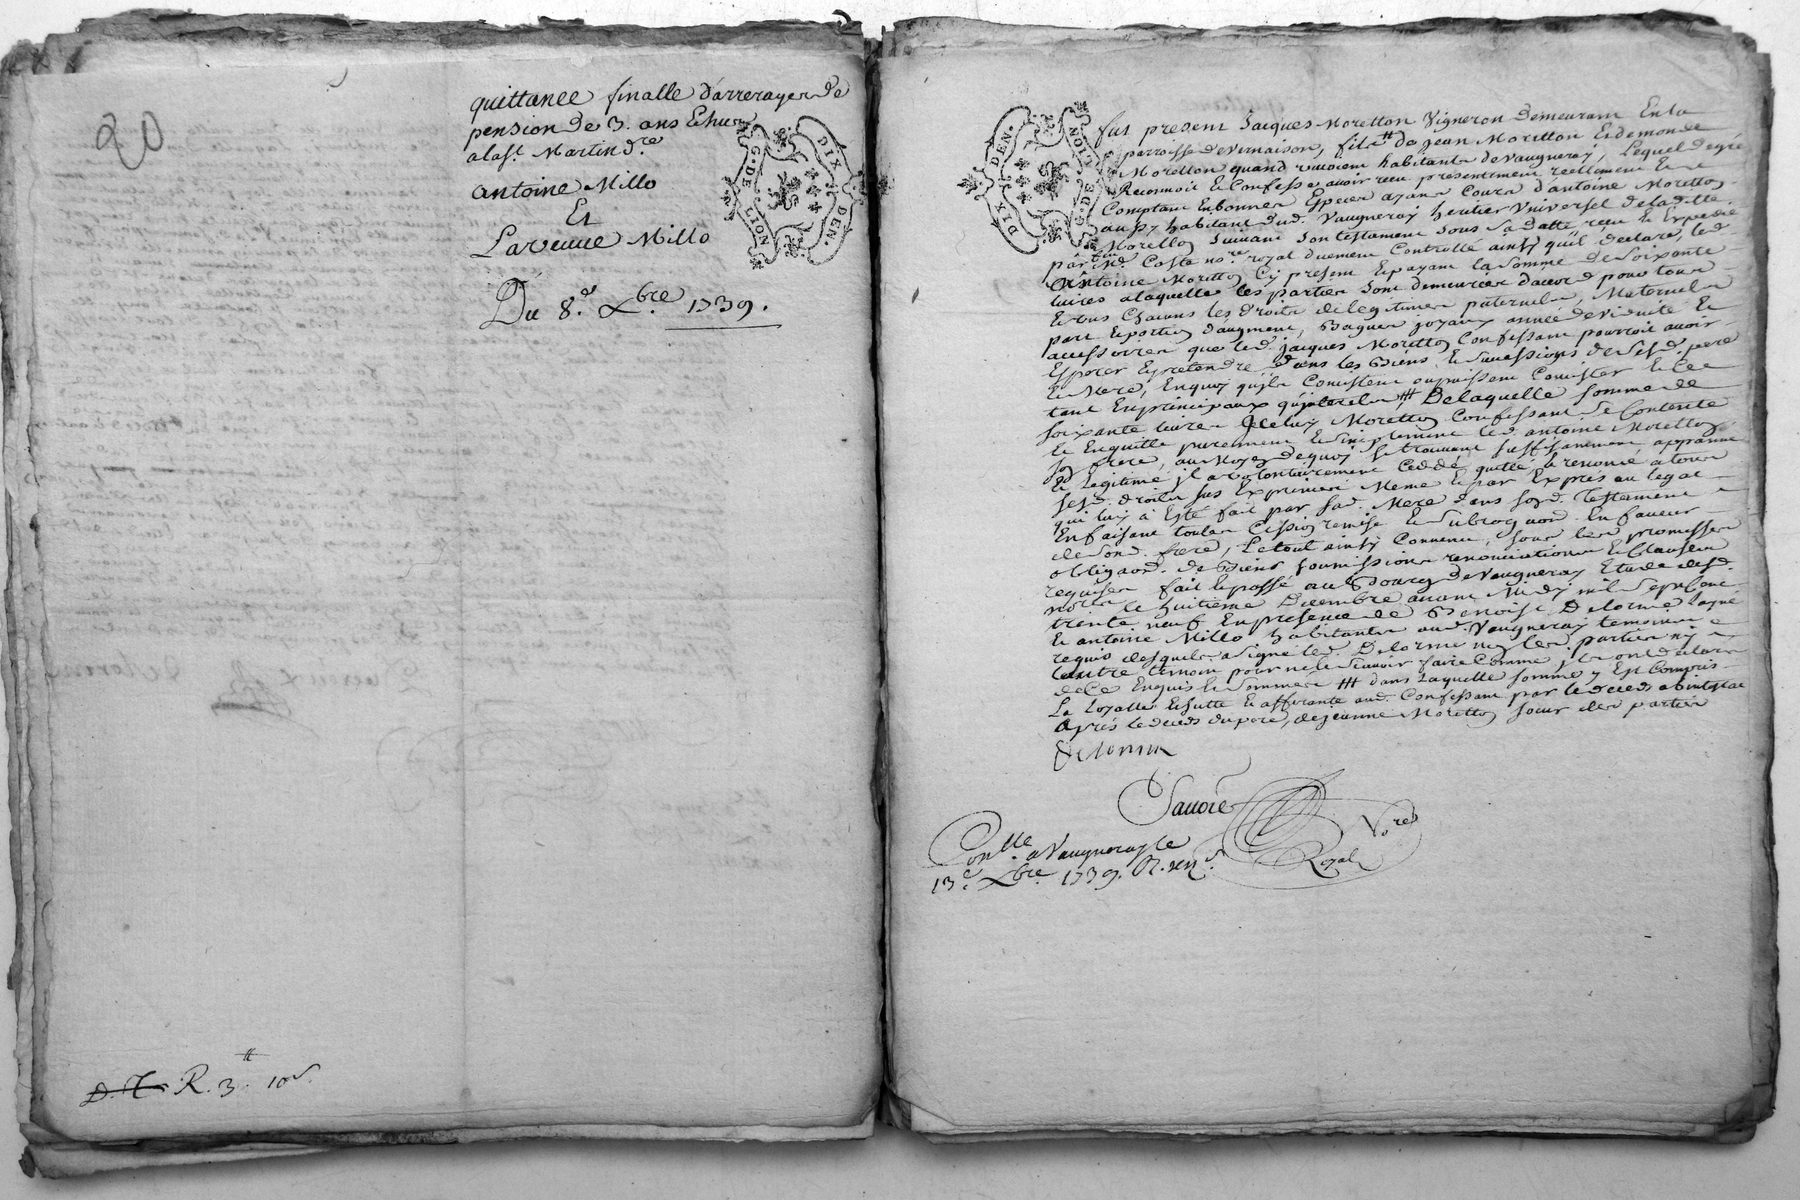 20
quittance finalle d'arrerages de
pension de 3. ans Echus
a la st. Martin d.re
antoine Millo
Et
La veuve Millo
Du 8.e Xbre. 1739.
G. DE LION
DIX DEN.
D. T. R. 3.# 10s
DIX DEN.
G. DE LION
fut present Jacques Moretton Vigneron demeurant En la
parroisse de vernaison, fils de Jean Moretton Et de
Moretton quand vivoient habitants de vaugneray, Lequel de gré
Reconnoit Et Confesse avoir receu presentement reellement Et
Comptant En bonnes Especes ayant Cours d'antoine Moretton
habitant dud. Vaugneray heritier Universel de ladite
Moretton suivant son testament sous sa datte receu Et Expedié
par Me. Coste nore. royal duement Controllé ainsy qu'il declare, led.
Antoine Moretton Cy present Et payant la somme de soixante
livres a laquelle les parties sont demeurées d'accord pour tous
Et uns Chacuns les droits de legitimes paternels, Maternels
part Et portion d'augment, Bagues joyaux année de viduité Et
accessoires que led. jacques Moretton Confessant pourroit avoir
Esperer Et pretendre dans les Biens Et successions de sesd. pere
Et Mere, En quoy qu'ils Consistent ou puissent Consister Et Ce
tant En principaux qu'interets ### De laquelle somme de
soixante livres Iceluy Moretton Confessant se Contente
Et En quitte purement Et simplement led. antoine Moretton
son frere, au Moyen de quoy se trouvant suffisamment appanné
Et Legitimé jl a volontairement Ceddé, quitté Et renoncé a tous
sesd. droits sus Exprimés Meme Et par Exprés au legat
qui luy a Esté fait par sad. Mere dans sond. Testament
En faisant toutes Cession remise Et subrogaon. En faveur
de sond. frere, Le tout ainsy Convenu, sous les promesses
obligaon. de Biens soumissions renonciations Et Clauses
requises fait Et passé au Bourg de Vaugneray Etude dud.
nore le huitieme Decembre avant Midy mil sept cent
trente neuf En presence de Benoist Delorme
Et antoine Millo habitants aud. Vaugneray temoins
requis desquels a signé led. Delorme non les parties ny
l'autre temoin pour ne le sçavoir faire Comme jls ont declaré
de Ce Enquis Et sommés ### dans laquelle somme y Est Compris
La Echutte Et afferante aud. Confessant par le deceds abintestat
Aprés le deceds du pere, de jeanne Moretton soeur des parties
Delorme
Nore
Royal
Conlle. a Vaugneray le
13.e Xbre. 1739. R.